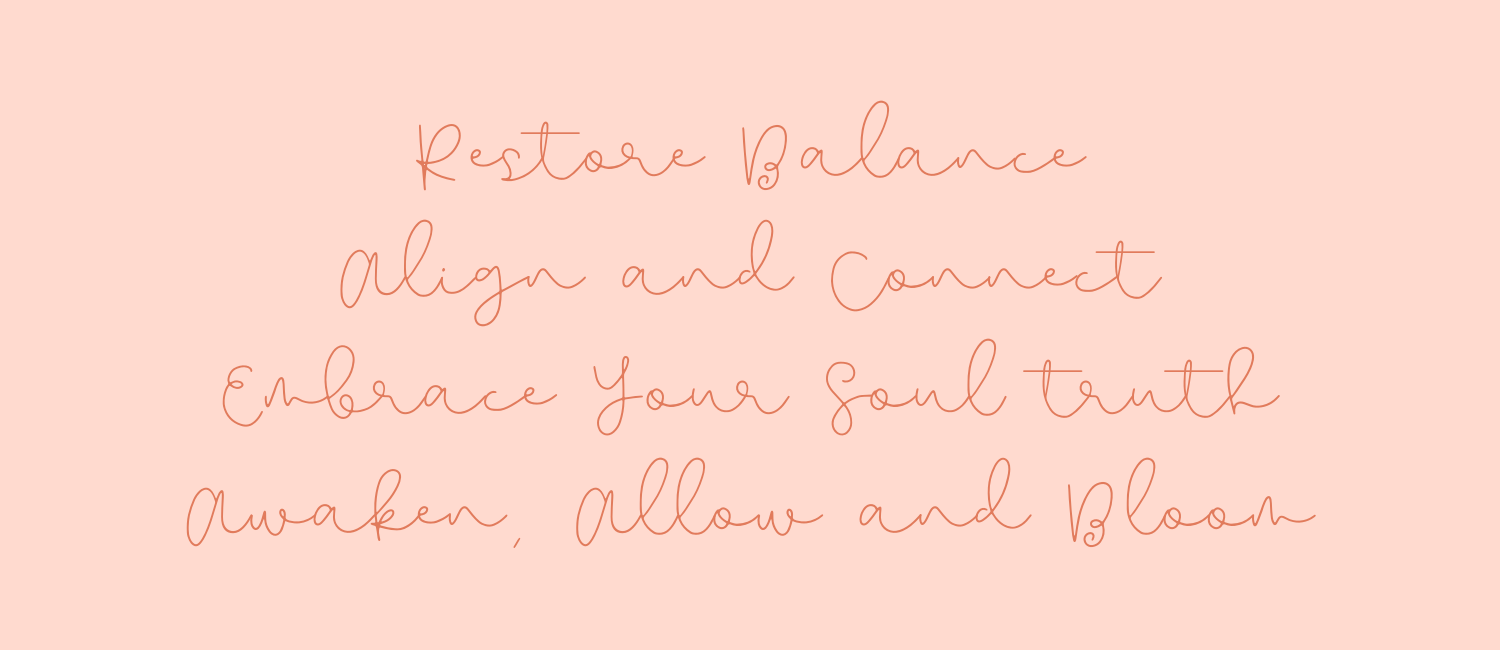 Restore Balance
Align and Connect
Embrace Your Soul truth
Awaken, Allow and Bloom